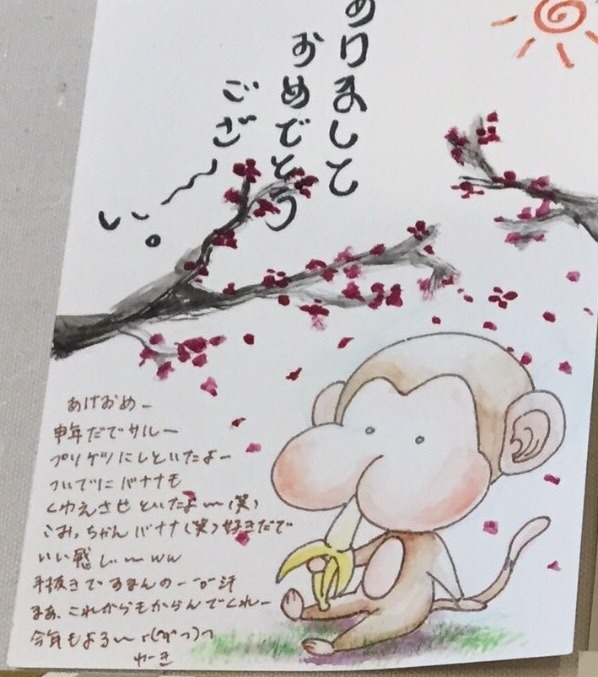 あけまして
おめでとう
ござ〜
い。
あけおめー
申年だでサルー
プリケツにしといたよー
ついでにバナナも
くわえさせといたよ〜(笑)
こみっちゃんバナナ(笑)好きだで
いい感じ〜ww
手抜きですまんのー
まあ、これからもからんでくれー
今年もよろ〜